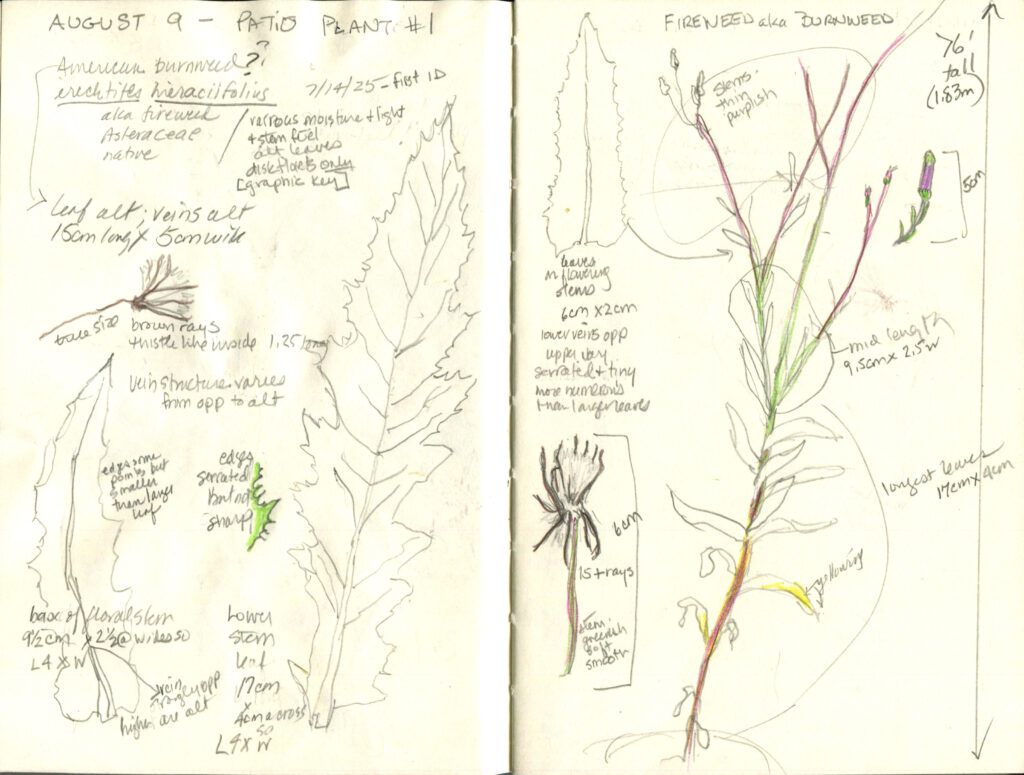 AUGUST 9 - PATIO PLANT #1
American burnweed??
erechtites hieraciifolius
aka fireweed
Asteraceae
native
7/14/25 - first ID
various moisture + light
+ stem fuel
alt leaves
disk florets only
[graphic key]
leaf alt; veins alt
15cm long x 5cm wide
trace size
brown rays
thistle like inside 1.25 long
vein structure varies
from opp to alt
edges some
points but
smaller
than large
leaf
edges
serrated
but not
sharp
base of floral stem
9½cm x 2½@ widest so
L4 x W
vein
opp
higher are alt
Lower
stem
leaf
17cm
x
4cm across
so
L4x W
FIREWEED aka BURNWEED
>6'
tall
(1.83m)
stems:
thin
purplish
5cm
leaves
on flowering
stems
6cm x 2cm
lower veins opp
upper vary
serrated + tiny
more numerous
than larger leaves
mid length
9.5cm x 2.5w
longest leaves
17cm x 4cm
6cm
15+ rays
stem:
greenish
soft
smooth
yellowing